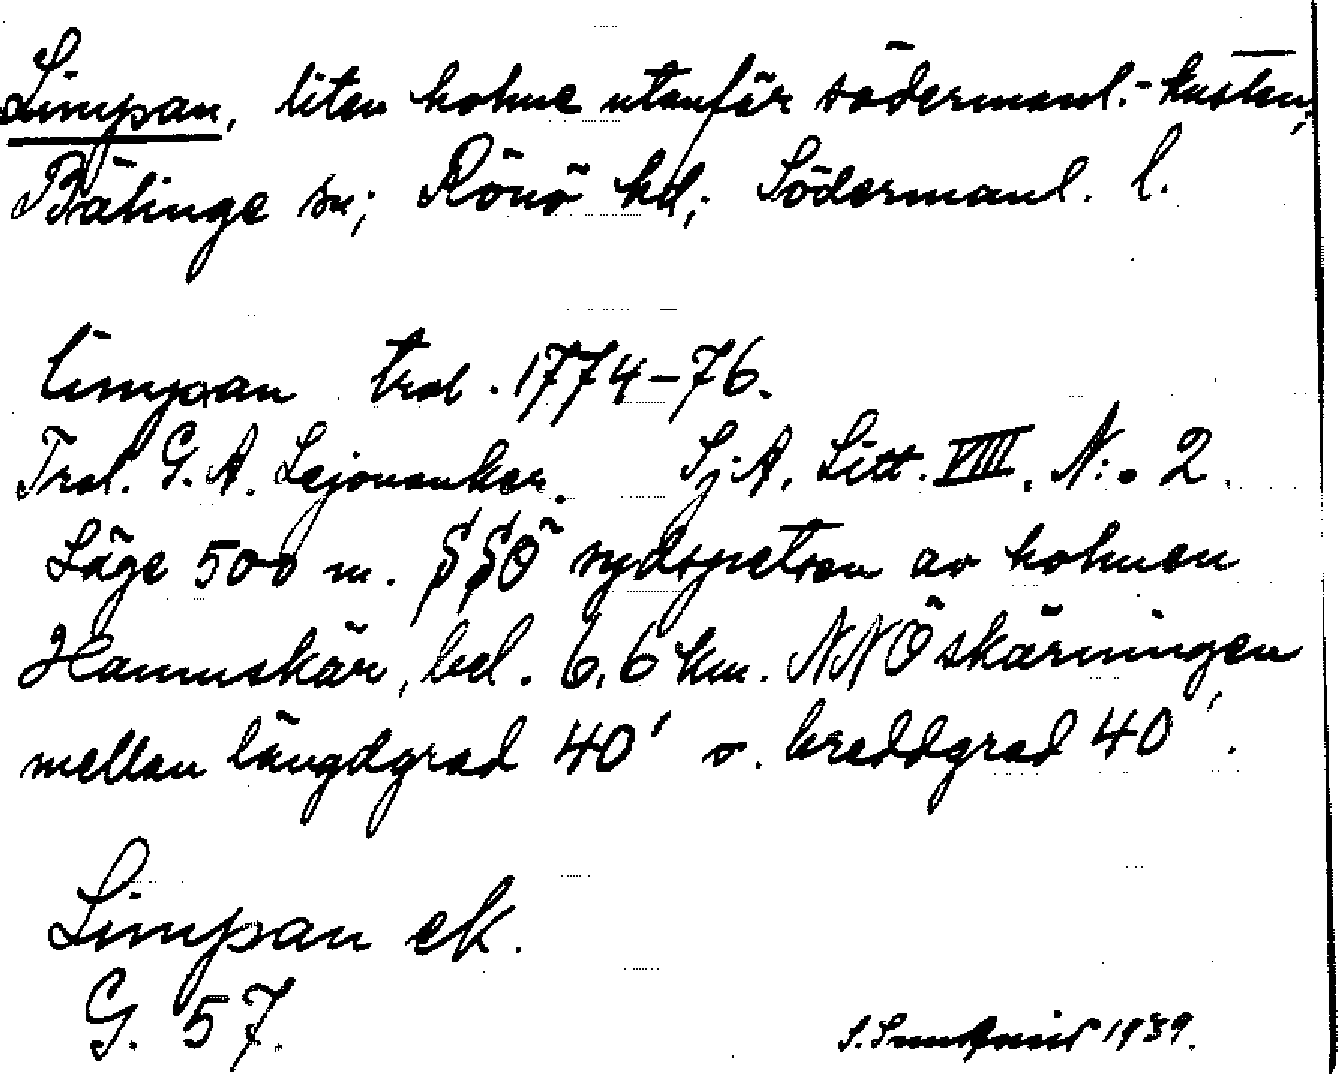 Limpan, liten holme utanför södermanl.-kusten,
Bälinge sn; Rönö hd; Södermanl. l.
limpan trol. 1774-76.
Trol. G. A. Lejonanker. Sj.A. Litt. VIII. N:o 2.
Läge 500 m. SSÖ sydspetsen av holmen
Hamnskär, bel. 6,6 km. NNÖ skärningen
mellan längdgrad 40' o. breddgrad 40'.
Limpan ek.
G. 57.
S. Sundqvist 1939.